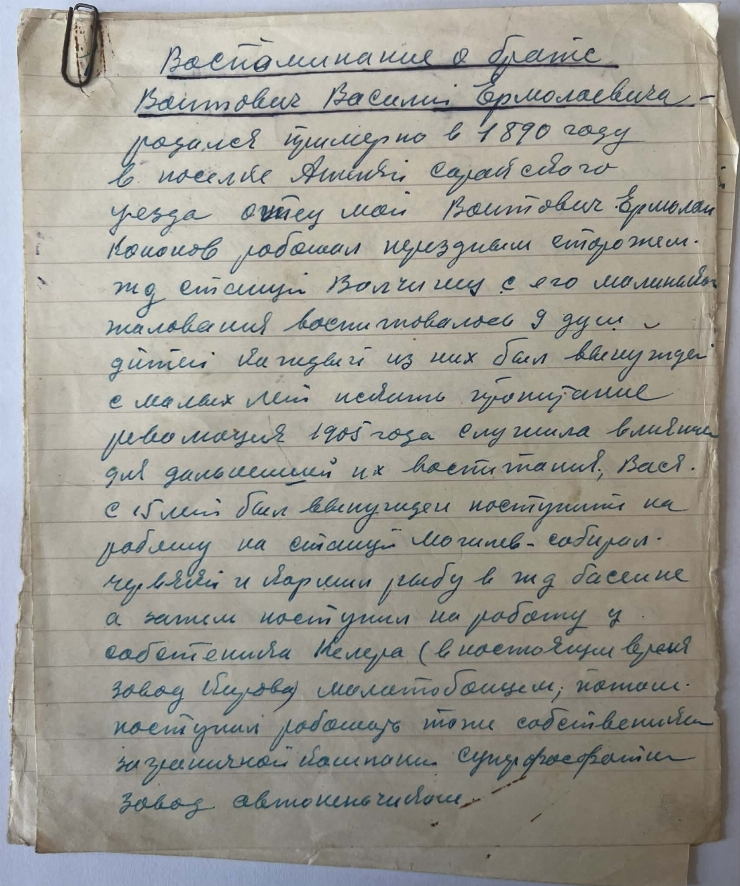 Воспоминание о брате
Воитович Василий Ермолаевича –
родался примерно в 1890 году
в поселке сарайского
уезда отец мой Воитович Ермолай
Кононов работал переездным сторожем.
жд станцй Волчинец с его малинькои
жалования воспитовалось 9 душ
дитей каждый из них был вынужден
с малых лет искать пропитание
революция 1905 года служила влияние
для дальнешей их воспитания, Вася.
с 15 лет был вынужден поступить на
работу на станцй Могилев-собирал.
червякй и кормил рыбу в жд басеине
а затем поступил на работу у
собственика Келера (в ностоящим время
завод Кирова) молотобоицем, потом.
поступил работать тоже собственика
заграничной компании
завод